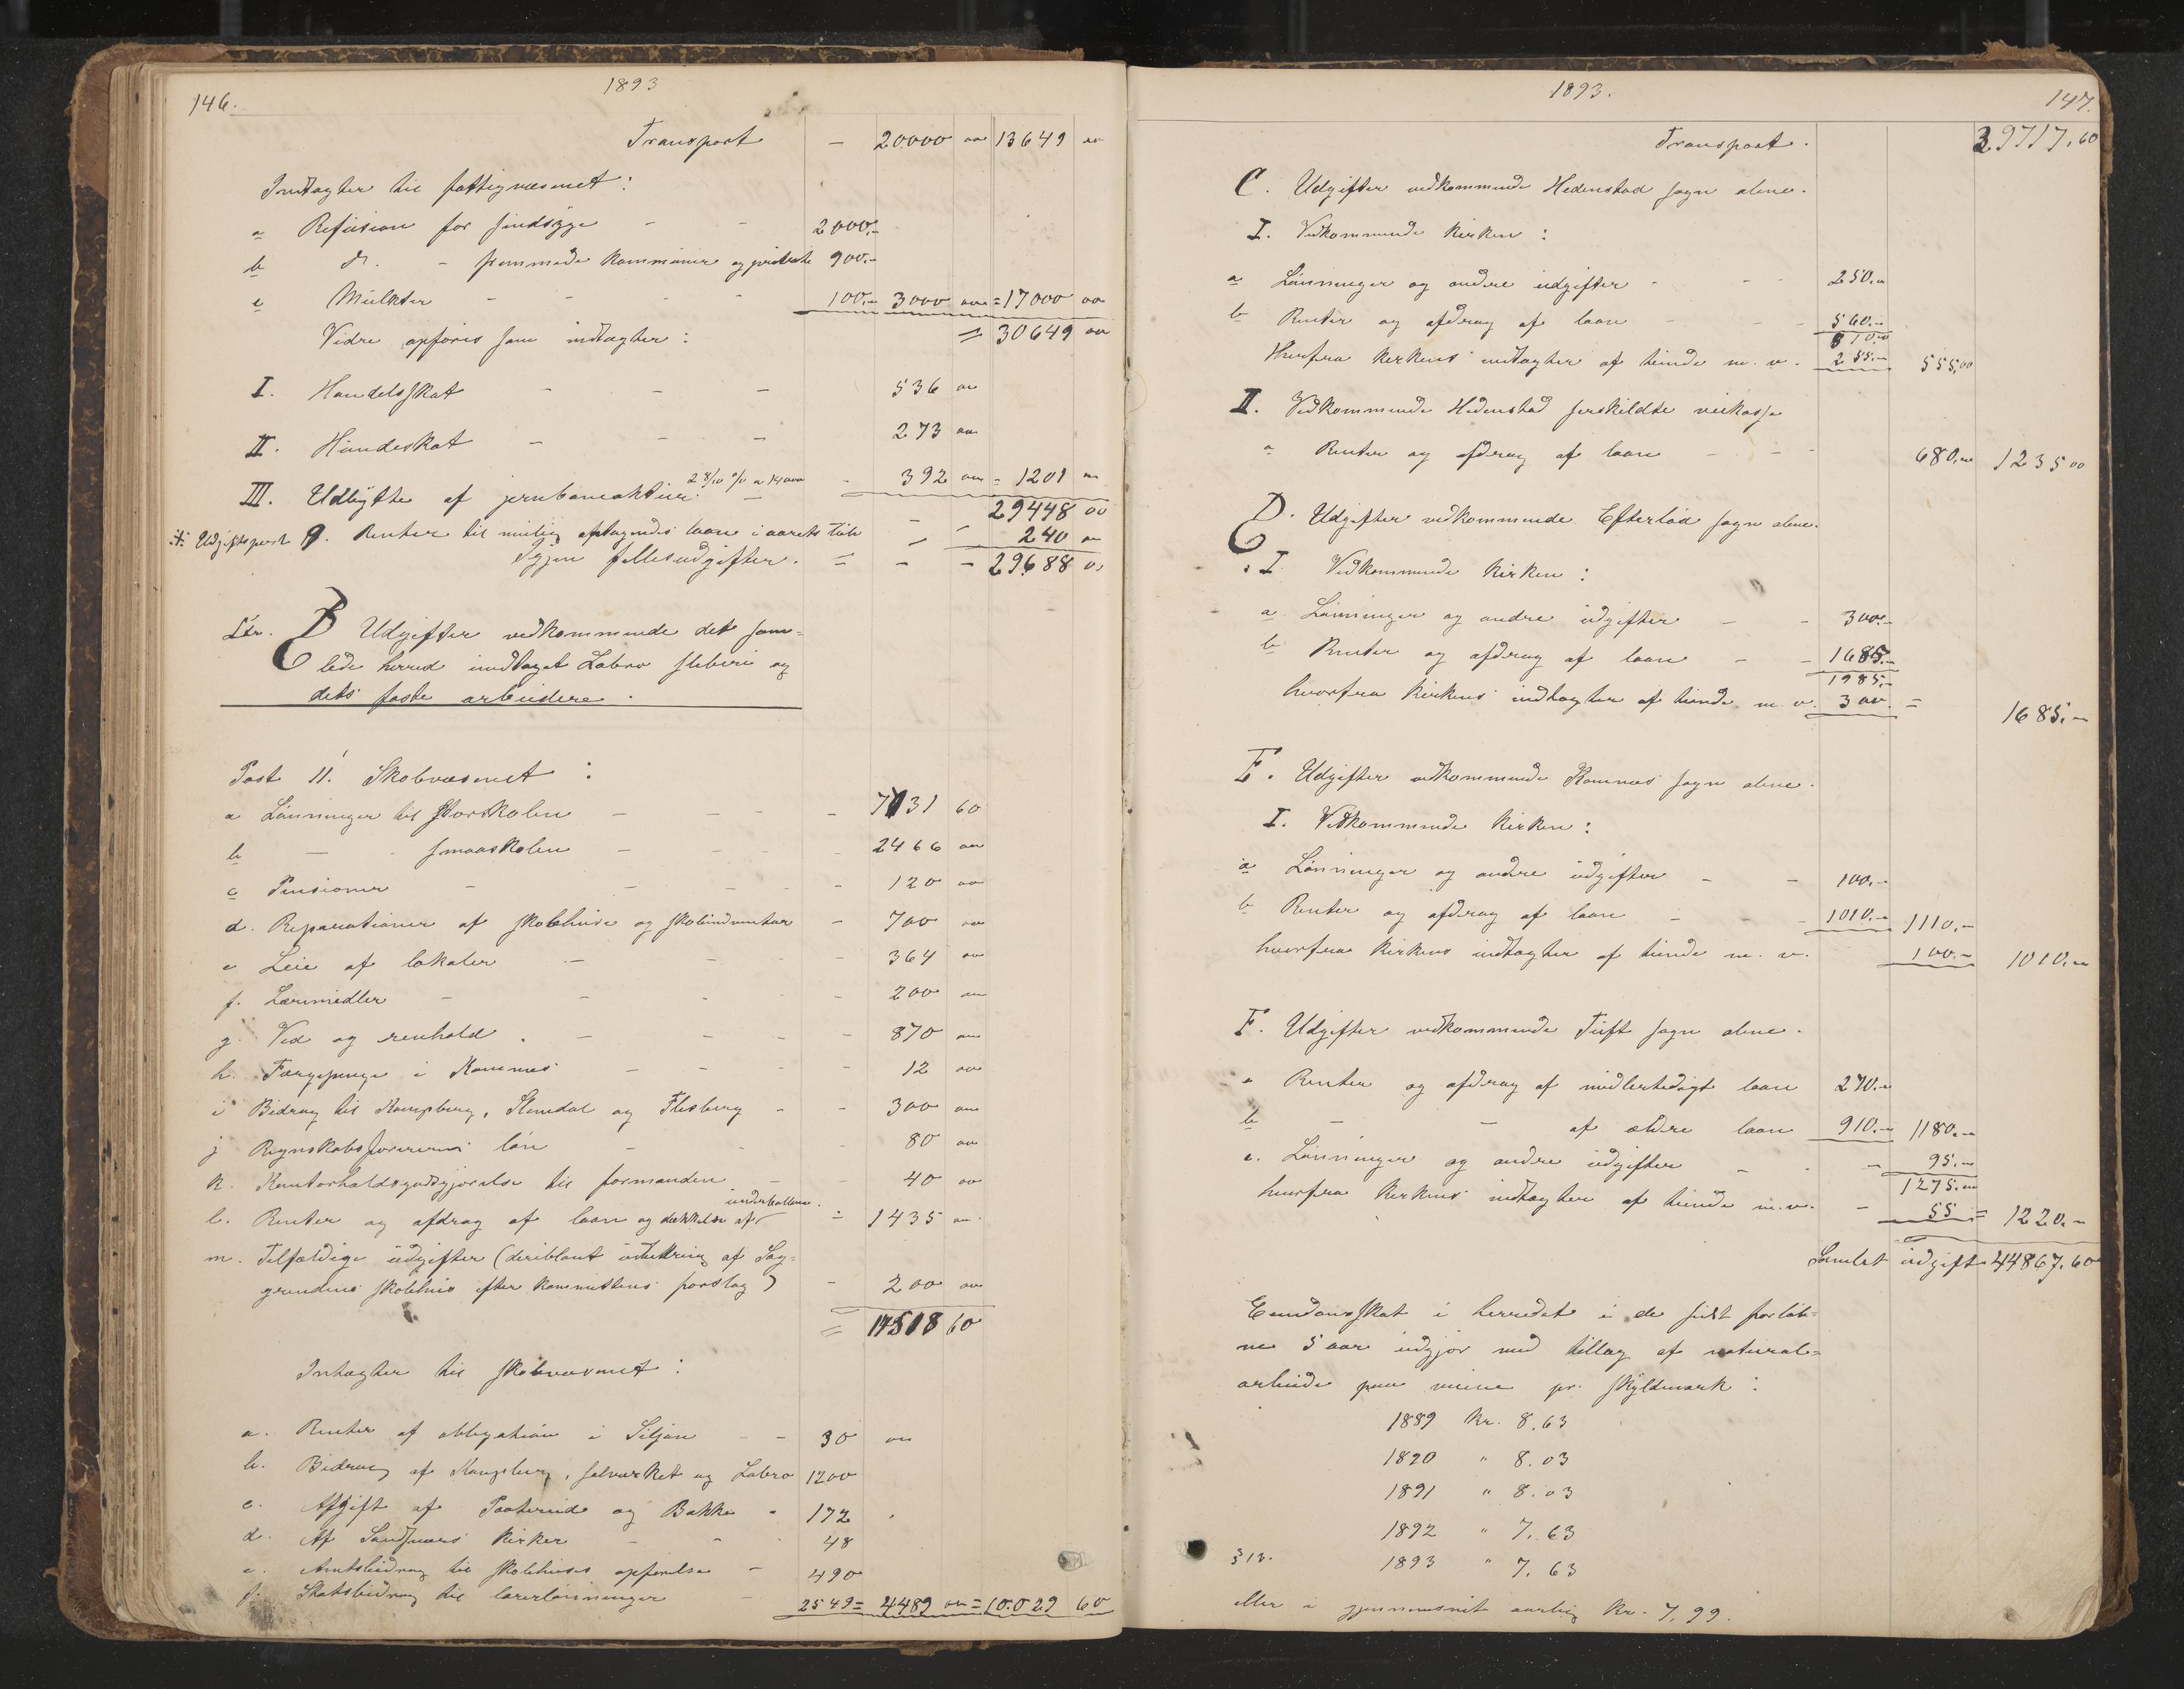 146.
1893
Transport - 20000 00 13649 00
Indtægter til fattigvæsenet:
a Refusion for sindsyge - - 2000.-
b do. - fremmede kommuner og private 900.-
c Mulkter - - - - 100.- 3000 00 = 17000 00
Videre opføres som indtægter: = 30649 00
I. Handelsskat - - - 536 00
II. Hundeskat - - - 273 00
III. Udbytte af jernbaneaktier 2 8/10 % a 14000 - 392 00 = 1201 00
29448 00
Udgiftspost 9. Renter til mulig optagendes laan i aarets løb - - 240 00
Igjen fællesudgifter. = - - 29688 00
Ltr. B Udgifter vedkommende det sam-
lede herred undtaget Labro sliberi og
dets faste arbeidere.
Post 11. Skolevæsenet:
a Lønninger til storskolen - - - - 7131 60
b - smaaskolen - - - - 2466 00
c Pensioner - - - - 120 00
d. Reparationer af skolehuse og skoleinventar - 700 00
e Leie af lokaler - - - - 364 00
f. Læremidler - - - - 200 00
g. Ved og renhold. - - - - 870 00
h. Færgepenge i Komnes - - - - 12 00
i Bidrag til Kongsberg, Slemdal og Flesberg - - 300 00
j Regnskabsførerens løn - - - 80 00
k. Kontorholdsgodtgjørelse til formanden - - 40 00
l. Renter og afdrag af laan og dækkelse af underballance. = 1435 00
m. Tilfældige udgifter (deriblandt af Sag-
grendens skolehus efter kommitteens forslag) - 200 00
= 14518 60
Indtægter til skolevæsenet:
a. Renter af obligation i Siljan - - 30 00
b. Bidrag af Kongsberg, sølvverket og Labro 1200
c. Afgift af og Bakke - 172
d. Af Sandsværs kirker - - 48
e. Amtsbidrag til skolehuses opførelse - 490
f. Statsbidrag til lærerlønninger - 2549 = 4489 00 = 10.029 60
1893.
147.
Transport. 39717.60
C. Udgifter vedkommende Hedenstad sogn alene.
I. Vedkommende kirken:
a Lønninger og andre udgifter - - - 250.00
b Renter og afdrag af laan - - - 560.-
810.00
Herfra kirkens indtægter af tiende m. v. 255.- 555.00
II. Vedkommende Hedenstad særskildte veikasse
a Renter og afdrag af laan - - - 680.00 1235 00
D. Udgifter vedkommende Efteløt sogn alene.
I Vedkommende kirken:
a. Lønninger og andre udgifter - - 300.-
b Renter og afdrag af laan - - 1685.-
1985.-
hvorfra kirkens indtægter af tiende m. v. 300. = 1685.-
E. Udgifter vedkommende Komnes sogn alene.
I. Vedkommende kirken:
a Lønninger og andre udgifter - - 100.-
b Renter og afdrag af laan - - - 1010.- 1110.-
hvorfra kirkens indtægter af tiende m. v. 100.- 1010.00
F. Udgifter vedkommende Tuft sogn alene.
a Renter og afdrag af midlertidigt laan 270.00
b - - af ældre laan 910.- 1180.-
c. Lønninger og andre udgifter - - - 95.-
1275.00
hvorfra kirkens indtægter af tiende m.v. - 55 = 1220.-
Samlet udgift 44867.60
Eiendomsskat i herredet i de sidst forløb-
ne 5 aar udgjør med tillæg af natural-
arbeide paa veiene pr. skyldmark:
1889 Kr. 8.63
1890 " 8.03
1891 " 8.03
1892 " 7.63
§ 13. 1893 " 7.63
eller i gjennemsnit aarlig Kr. 7,99.